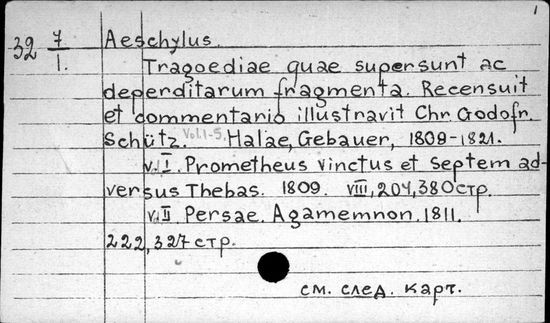 1
32 7/1. Aeschylus.
Tragoediae quae supersunt ac
deperditarum fragmenta. Recensuit
et commentario illustravit Chr. Godofr.
Schütz. Vol.1-5. Halae, Gebauer, 1809-1821.
v. I. Prometheus vinctus et Septem ad-
versus Thebas. 1809. VIII, 204, 380 стр.
v. II Persae. Agamemnon. 1811.
222, 327 стр.
см. след. карт.